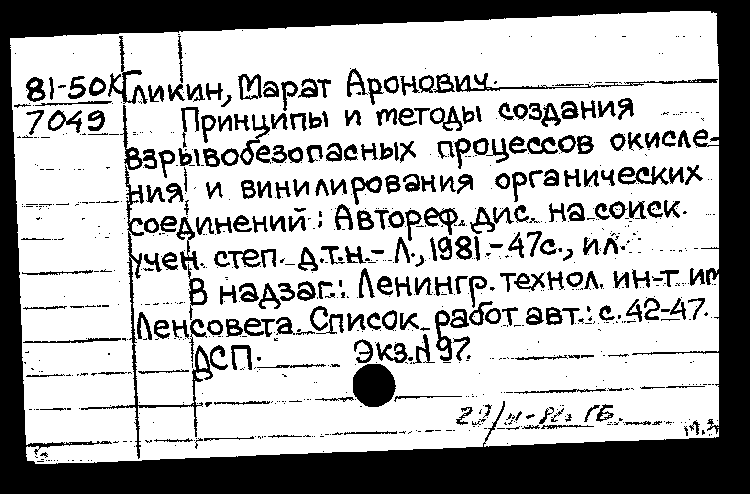 81-50К Гликин, Марат Аронович.
7049 Принципы и методы создания
взрывобезопасных процессов окисле-
ния и винилирования органических
соединений: Автореф. дис. на соиск.
учен. степ. д.т.н. - Л., 1981. - 47с., ил.
В надзаг.: Ленингр. технол. ин-т им
Ленсовета. Список работ авт.: с. 42-47.
ДСП. Экз. N 97.
ГБ.